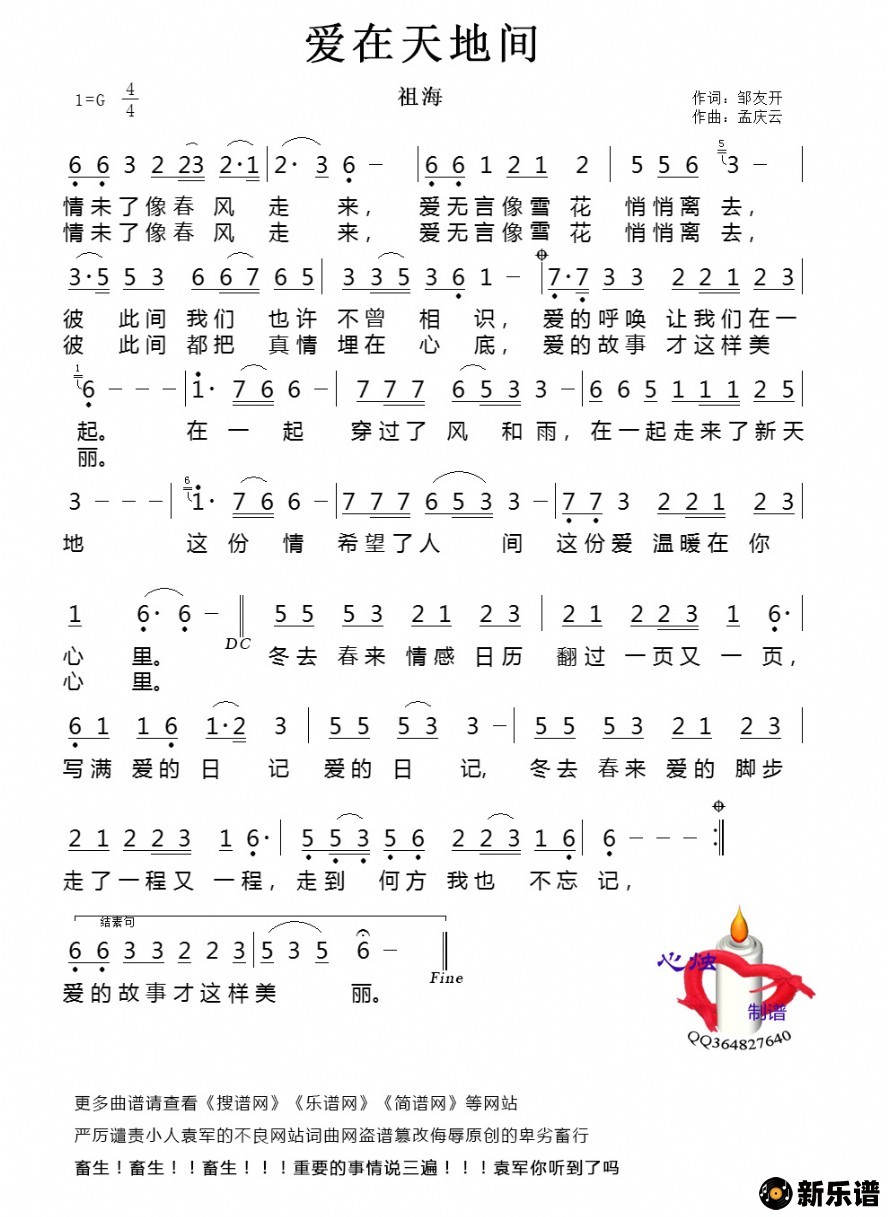 爱在天地间
1=G 4/4 祖海 作词：邹友开
作曲：孟庆云
6 6 3 2 23 2·1 | 2· 3 6 – | 6 6 1 2 1 2 | 5 5 6 5 3 – |
情未了像春风走来，爱无言像雪花悄悄离去，
情未了像春风走来，爱无言像雪花悄悄离去，
3·5 5 3 6 6 7 6 5 | 3 3 5 3 6 1 – | 7·7 3 3 2 2 1 2 3 |
彼此间我们也许不曾相识，爱的呼唤让我们在一
彼此间都把真情埋在心底，爱的故事才这样美
1 6 – – – | 1· 7 6 6 – | 7 7 7 6 5 3 3 – | 6 6 5 1 1 1 2 5 |
起。在一起穿过了风和雨，在一起走来了新天
丽。
3 – – – | 6 1· 7 6 6 – | 7 7 7 6 5 3 3 – | 7 7 3 2 2 1 2 3 |
地这份情希望了人间这份爱温暖在你
1 6· 6 – DC 5 5 5 3 2 1 2 3 | 2 1 2 2 3 1 6· |
心里。冬去春来情感日历翻过一页又一页，
心里。
6 1 1 6 1·2 3 | 5 5 5 3 3 – | 5 5 5 3 2 1 2 3 |
写满爱的日记爱的日记，冬去春来爱的脚步
2 1 2 2 3 1 6· | 5 5 3 5 6 2 2 3 1 6 | 6 – – – :
走了一程又一程，走到何方我也不忘记，
结素句
6 6 3 3 2 2 3 | 5 3 5 6 – Fine
爱的故事才这样美丽。
心烛
制谱
QQ364827640
更多曲谱请查看《搜谱网》《乐谱网》《简谱网》等网站
严厉谴责小人袁军的不良网站词曲网盗谱篡改侮辱原创的卑劣畜行
畜生！畜生！！畜生！！！重要的事情说三遍！！！袁军你听到了吗
新乐谱